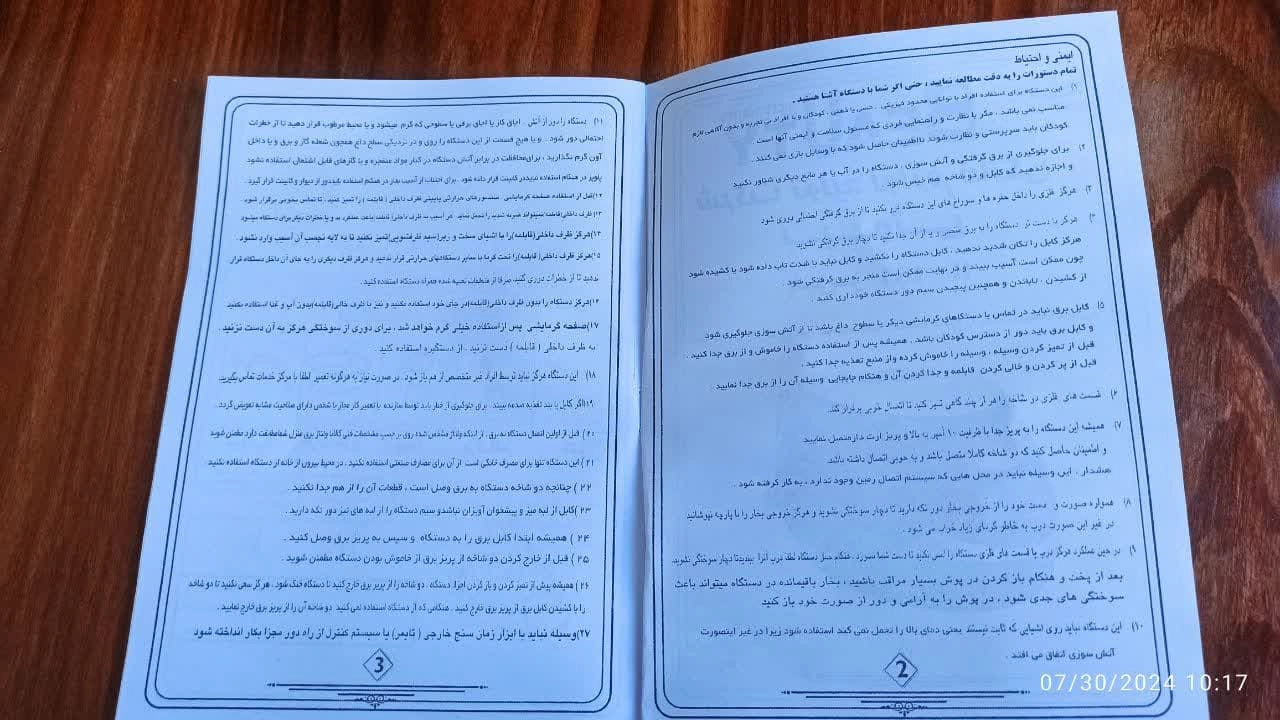 ایمنی و احتیاط
تمام دستورات را به دقت مطالعه نمایید ، حتی اگر شما با دستگاه آشنا هستید .
۱) این دستگاه برای استفاده افراد با توانایی محدود فیزیکی ، حسی یا ذهنی ، کودکان و یا افراد بی تجربه و بدون آگاهی لازم
مناسب نمی باشد . مگر با نظارت و راهنمایی فردی که مسئول سلامت و ایمنی آنها است
کودکان باید سرپرستی و نظارت شوند تااطمینان حاصل شود که با وسایل بازی نمی کنند .
۲) برای جلوگیری از برق گرفتگی و آتش سوزی ، دستگاه را در آب یا هر مایع دیگری شناور نکنید
و اجازه ندهید که کابل و دو شاخه هم خیس شود .
۳) هرگز فلزی را داخل حفره ها و سوراخ های این دستگاه فرو نکنید تا از برق گرفتگی احتمالی دوری شود
۴) هرگز با دست تر دستگاه را به برق متصل و یا از آن جدا نکنید تا دچار برق گرفتگی نشوید
هرگز کابل را تکان شدید ندهید ، کابل دستگاه را نکشید و کابل نباید با شدت تاب داده شود یا کشیده شود
چون ممکن است آسیب ببیند و در نهایت ممکن است منجر به برق گرفتگی شود
از کشیدن ، تاباندن و همچنین پیچیدن سیم دور دستگاه خودداری کنید .
۵) کابل برق نباید در تماس با دستگاهای گرمایشی دیگر یا سطوح داغ باشد تا از آتش سوزی جلوگیری شود
و کابل برق باید دور از دسترس کودکان باشد . همیشه پس از استفاده دستگاه را خاموش و از برق جدا کنید .
قبل از تمیز کردن وسیله ، وسیله را خاموش کرده واز منبع تغذیه جدا کنید .
قبل از پر کردن و خالی کردن قابلمه و جدا کردن آن و هنگام جابجایی وسیله آن را از برق جدا نمایید
۶) قسمت های فلزی دو شاخه را هر از چند گاهی تمیز کنید تا اتصال خوبی برقرار کند.
۷) همیشه این دستگاه را به پریز جدا با ظرفیت ۱۰ آمپر به بالا و پریز ارت دارمتصل نمایید
و اطمینان حاصل کنید که دو شاخه کاملا متصل باشد و به خوبی اتصال داشته باشد
هشدار . این وسیله نباید در محل هایی که سیستم اتصال زمین وجود ندارد ، به کار گرفته شود .
۸) همواره صورت و دست خود را از خروجی بخار دور نگه دارید تا دچار سوختگی نشوید و هرگز خروجی بخار را با پارچه نپوشانید
در غیر این صورت درب به خاطر گرمای زیاد خراب می شود .
۹) در حین عملکرد هرگز درب یا قسمت های فلزی دستگاه را لمس نکنید تا دست شما نسوزد . هنگام حمل دستگاه لطفا درب آنرا ببندیدتا دچار سوختگی نشوید.
بعد از پخت و هنگام باز کردن در پوش بسیار مراقب باشید ، بخار باقیمانده در دستگاه میتواند باعث
سوختگی های جدی شود ، در پوش را به آرامی و دور از صورت خود باز کنید
۱۰) این دستگاه نباید روی اشیایی که ثابت نیستند یعنی دمای بالا را تحمل نمی کند استفاده شود زیرا در غیر اینصورت
آتش سوزی اتفاق می افتد .
2
۱۱) دستگاه را دور از آتش ، اجاق گاز یا اجاق برقی یا سطوحی که گرم میشود و یا محیط مرطوب قرار دهید تا از خطرات
احتمالی دور شود . و یا هیچ قسمت از این دستگاه را روی و در نزدیکی سطح داغ همچون شعله گاز و برق و یا داخل
آون گرم نگذارید ، برای محافظت در برابر آتش دستگاه در کنار مواد منفجره و یا گازهای قابل اشتعال استفاده نشود
پلوپز در هنگام استفاده نبایددر کابینت قرار داده شود . برای اجتناب از آسیب بخار در هنگام استفاده بایددور از دیوار وکابینت قرار گیرد .
۱۲)قبل از استفاده صفحه گرمایشی . سنسورهای حرارتی پایینی ظرف داخلی ( قابلمه ) را تمیز کنید . تا تماس بخوبی برقرار شود .
۱۳) ظرف داخلی(قابلمه)نمیتواند ضربه شدید را تحمل نماید . هر آسیب به ظرف داخلی( قابلمه )باعث عملکرد بد و یا خطرات دیگر برای دستگاه میشود
۱۴)هرگز ظرف داخلی(قابلمه)را با اشیای سخت و زبر(سبد ظرفشویی)تمیز نکنید تا به لایه نچسب آن آسیب وارد نشود .
۱۵)هرگز ظرف داخلی( قابلمه)را تحت گرما با سایر دستگاههای حرارتی قرار ندهید و هرگز ظرف دیگری را به جای آن داخل دستگاه قرار
ندهید تا از خطرات دوری کنید. صرفا از متعلقات تعبیه شده همراه دستگاه استفاده کنید .
۱۶)هرگز دستگاه را بدون ظرف داخلی(قابلمه)در جای خود استفاده نکنید و نیز با ظرف خالی(قابلمه)بدون آب و غذا استفاده نکنید
۱۷)صفحه گرمایشی پس ازاستفاده خیلی گرم خواهد شد ، برای دوری از سوختگی هرگز به آن دست نزنید .
به ظرف داخلی ( قابلمه ) دست نزنید . از دستگیره استفاده کنید
۱۸) این دستگاه هرگز نباید توسط افراد غیر متخصص از هم باز شود . در صورت نیاز به هرگونه تعمیر لطفا با مرکز خدمات تماس بگیرید.
۱۹)اگر کابل یا بند تغذیه صدمه ببیند . برای جلوگیری از خطر باید توسط سازنده یا تعمیر کار مجاز یا شخص دارای صلاحیت مشابه تعویض گردد .
۲۰) قبل از اولین اتصال دستگاه به برق . از اینکه ولتاژ مشخص شده روی برچسب مشخصات فنی کالابا ولتاژ برق منزل شمامطابقت دارد مطمئن شوید
۲۱) این دستگاه تنها برای مصرف خانگی است از آن برای مصارف صنعتی استفاده نکنید . در محیط بیرون از خانه از دستگاه استفاده نکنید
۲۲ ) چنانچه دو شاخه دستگاه به برق وصل است ، قطعات آن را از هم جدا نکنید .
۲۳ )کابل از لبه میز و پیشخوان آویزان نباشدو سیم دستگاه را از لبه های تیز دور نگه دارید .
۲۴ ) همیشه ابتدا کابل برق را به دستگاه و سپس به پریز برق وصل کنید .
۲۵ ) قبل از خارج کردن دو شاخه از پریز برق از خاموش بودن دستگاه مطمئن شوید .
۲۶ ) همیشه پیش از تمیز کردن و باز کردن اجزاء دستگاه . دو شاخه را از پریز برق خارج کنید تا دستگاه خنک شود . هرگز سعی نکنید تا دو شاخه
را با کشیدن کابل برق از پریز برق خارج کنید . هنگامی که از دستگاه استفاده نمی کنید دو شاخه آن را از پریز برق خارج نمایید .
۲۷)وسیله نباید با ابزار زمان سنج خارجی ( تایمر) یا سیستم کنترل از راه دور مجزا بکار انداخته شود
3
07/30/2024 10:17